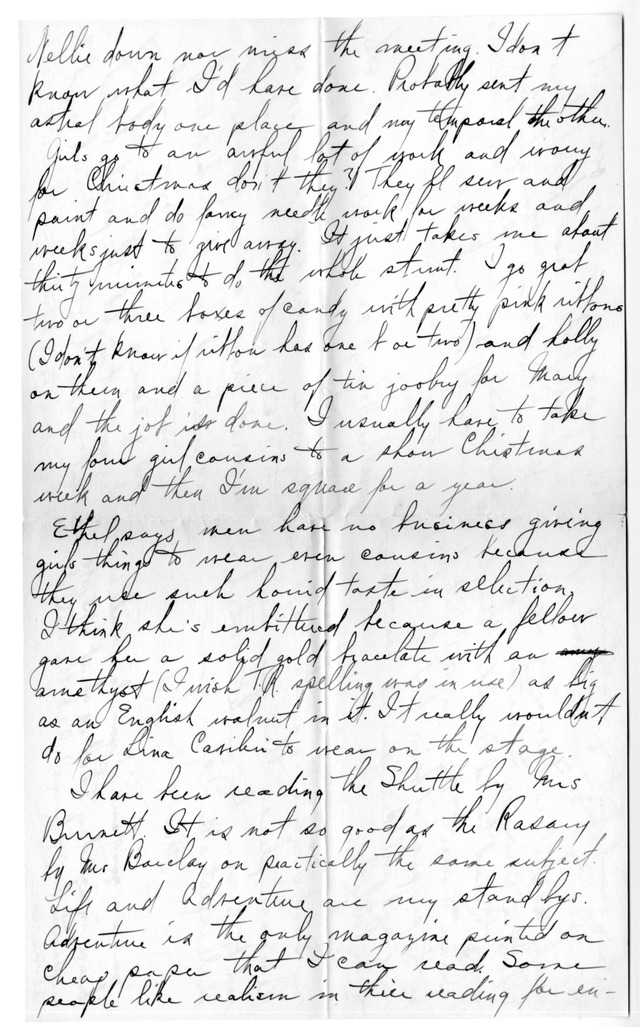 Nellie down nor miss the meeting. I don't
know what I'd have done. Probably sent my
astral body one place and my temporal the other.
Girls go to an awful lot of work and worry
for Christmas don't they? They'll sew and
paint and do fancy needle work for weeks and
weeks just to give away. It just takes me about
thirty minutes to do the whole stunt. I go grab
two or three boxes of candy with pretty pink ribbons
(I don't know if ribbon has one b or two) and holly
on them and a piece of tin for Mary
and the job is done. I usually have to take
my four girl cousins to a show Christmas
week and then I'm square for a year.
Ethel says, men have no business giving
girls things to wear even cousins because
they use such horrid taste in selection.
I think she's embittered because a fellow
gave her a solid gold bracelate with an
amethyst (I wish T.R. spelling was in use) as big
as an English walnut in it. It really wouldn't
do for Lina to wear on the stage.
I have been reading the Shuttle by Mrs
Burnett. It is not so good as the Rosary
by Mrs Barclay on practically the same subject.
Life and Adventure are my standbys.
Adventure is the only magazine printed on
cheap paper that I can read. Some
people like realism in their reading for en-